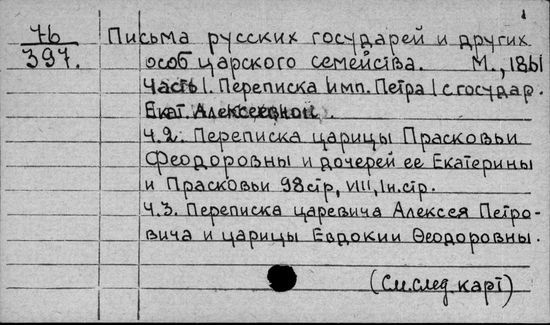 76 Письма русских государей и других
397. особ царского семейства. М., 1861
Часть I. Переписка Имп. Петра I с государ.
Екат. Алексеевной.
Ч.2. Переписка царицы Прасковьи
Феодоровны и дочерей ее Екатерины
и Прасковьи 98 стр, VIII, 1н.стр.
Ч.3. Переписка царевича Алексея Петро-
вича и царицы Евдокии Ѳеодоровны.
(См. след карт)